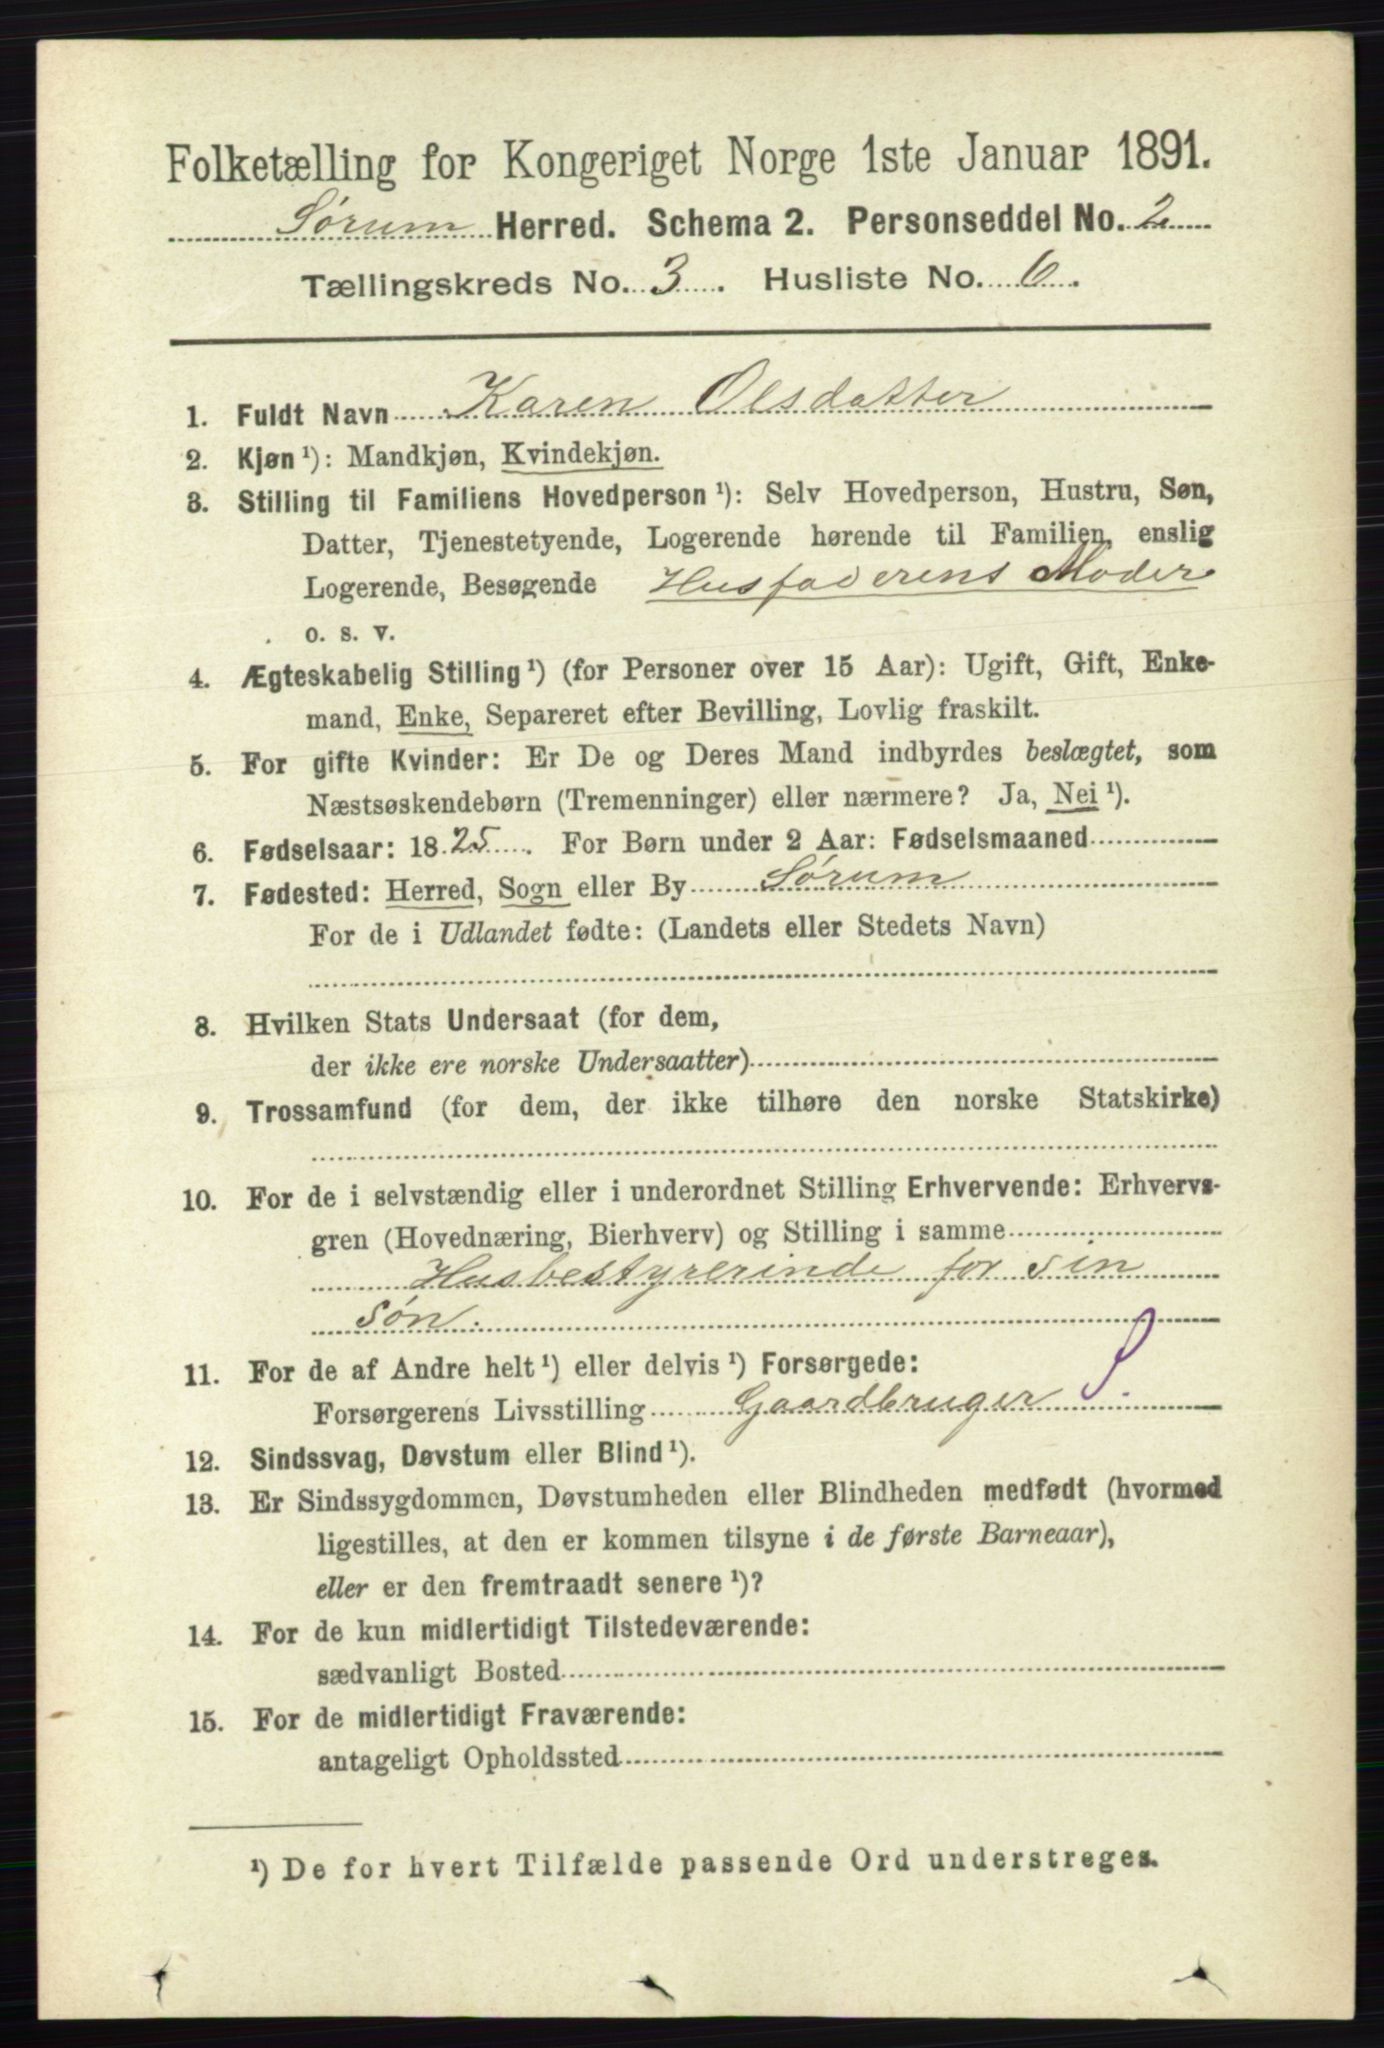 Folketælling for Kongeriget Norge 1ste Januar 1891.
Sørum Herred. Schema 2. Personseddel No. 2
Tællingskreds No. 3. Husliste No. 6.
1. Fuldt Navn Karen Olsdatter
2. Kjøn ¹): Mandkjøn, Kvindekjøn.
3. Stilling til Familiens Hovedperson ¹): Selv Hovedperson, Hustru, Søn,
Datter, Tjenestetyende, Logerende hørende til Familien, enslig
Logerende, Besøgende Husfaderens Moder
o. s. v.
4. Ægteskabelig Stilling ¹) (for Personer over 15 Aar): Ugift, Gift, Enke-
mand, Enke, Separeret efter Bevilling, Lovlig fraskilt.
5. For gifte Kvinder: Er De og Deres Mand indbyrdes beslægtet, som
Næstsøskendebørn (Tremenninger) eller nærmere? Ja, Nei ¹).
6. Fødselsaar: 1825. For Børn under 2 Aar: Fødselsmaaned
7. Fødested: Herred, Sogn eller By Sørum
For de i Udlandet fødte: (Landets eller Stedets Navn)
8. Hvilken Stats Undersaat (for dem,
der ikke ere norske Undersaatter)
9. Trossamfund (for dem, der ikke tilhøre den norske Statskirke)
10. For de i selvstændig eller i underordnet Stilling Erhvervende: Erhvervs-
gren (Hovednæring, Bierhverv) og Stilling i samme
Husbestyrerinde for sin
søn.
11. For de af Andre helt ¹) eller delvis ¹) Forsørgede:
Forsørgerens Livsstilling Gaardbruger
12. Sindssvag, Døvstum eller Blind ¹).
13. Er Sindssygdommen, Døvstumheden eller Blindheden medfødt (hvormed
ligestilles, at den er kommen tilsyne i de første Barneaar),
eller er den fremtraadt senere ¹)?
14. For de kun midlertidigt Tilstedeværende:
sædvanligt Bosted
15. For de midlertidigt Fraværende:
antageligt Opholdssted
¹) De for hvert Tilfælde passende Ord understreges.